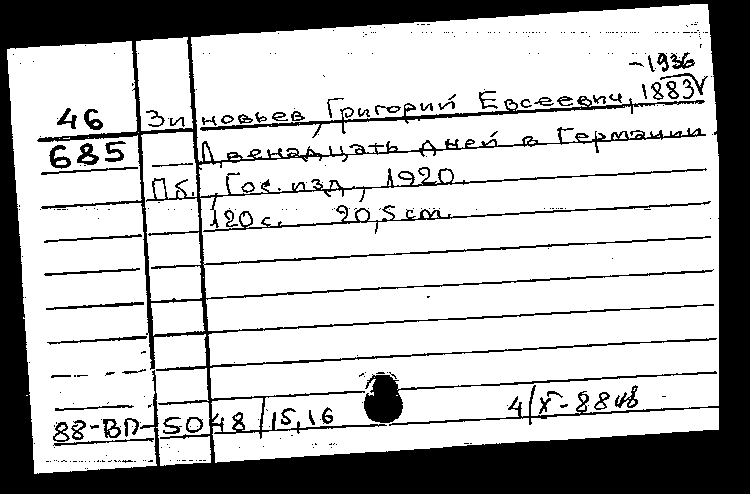 -1936
46 Зиновьев, Григорий Евсеевич, 1883
685 Двенадцать дней в Германии.
Пб., Гос. изд., 1920.
120 с. 20,5 cm.
88-ВП-5048/15,16 4/X-88